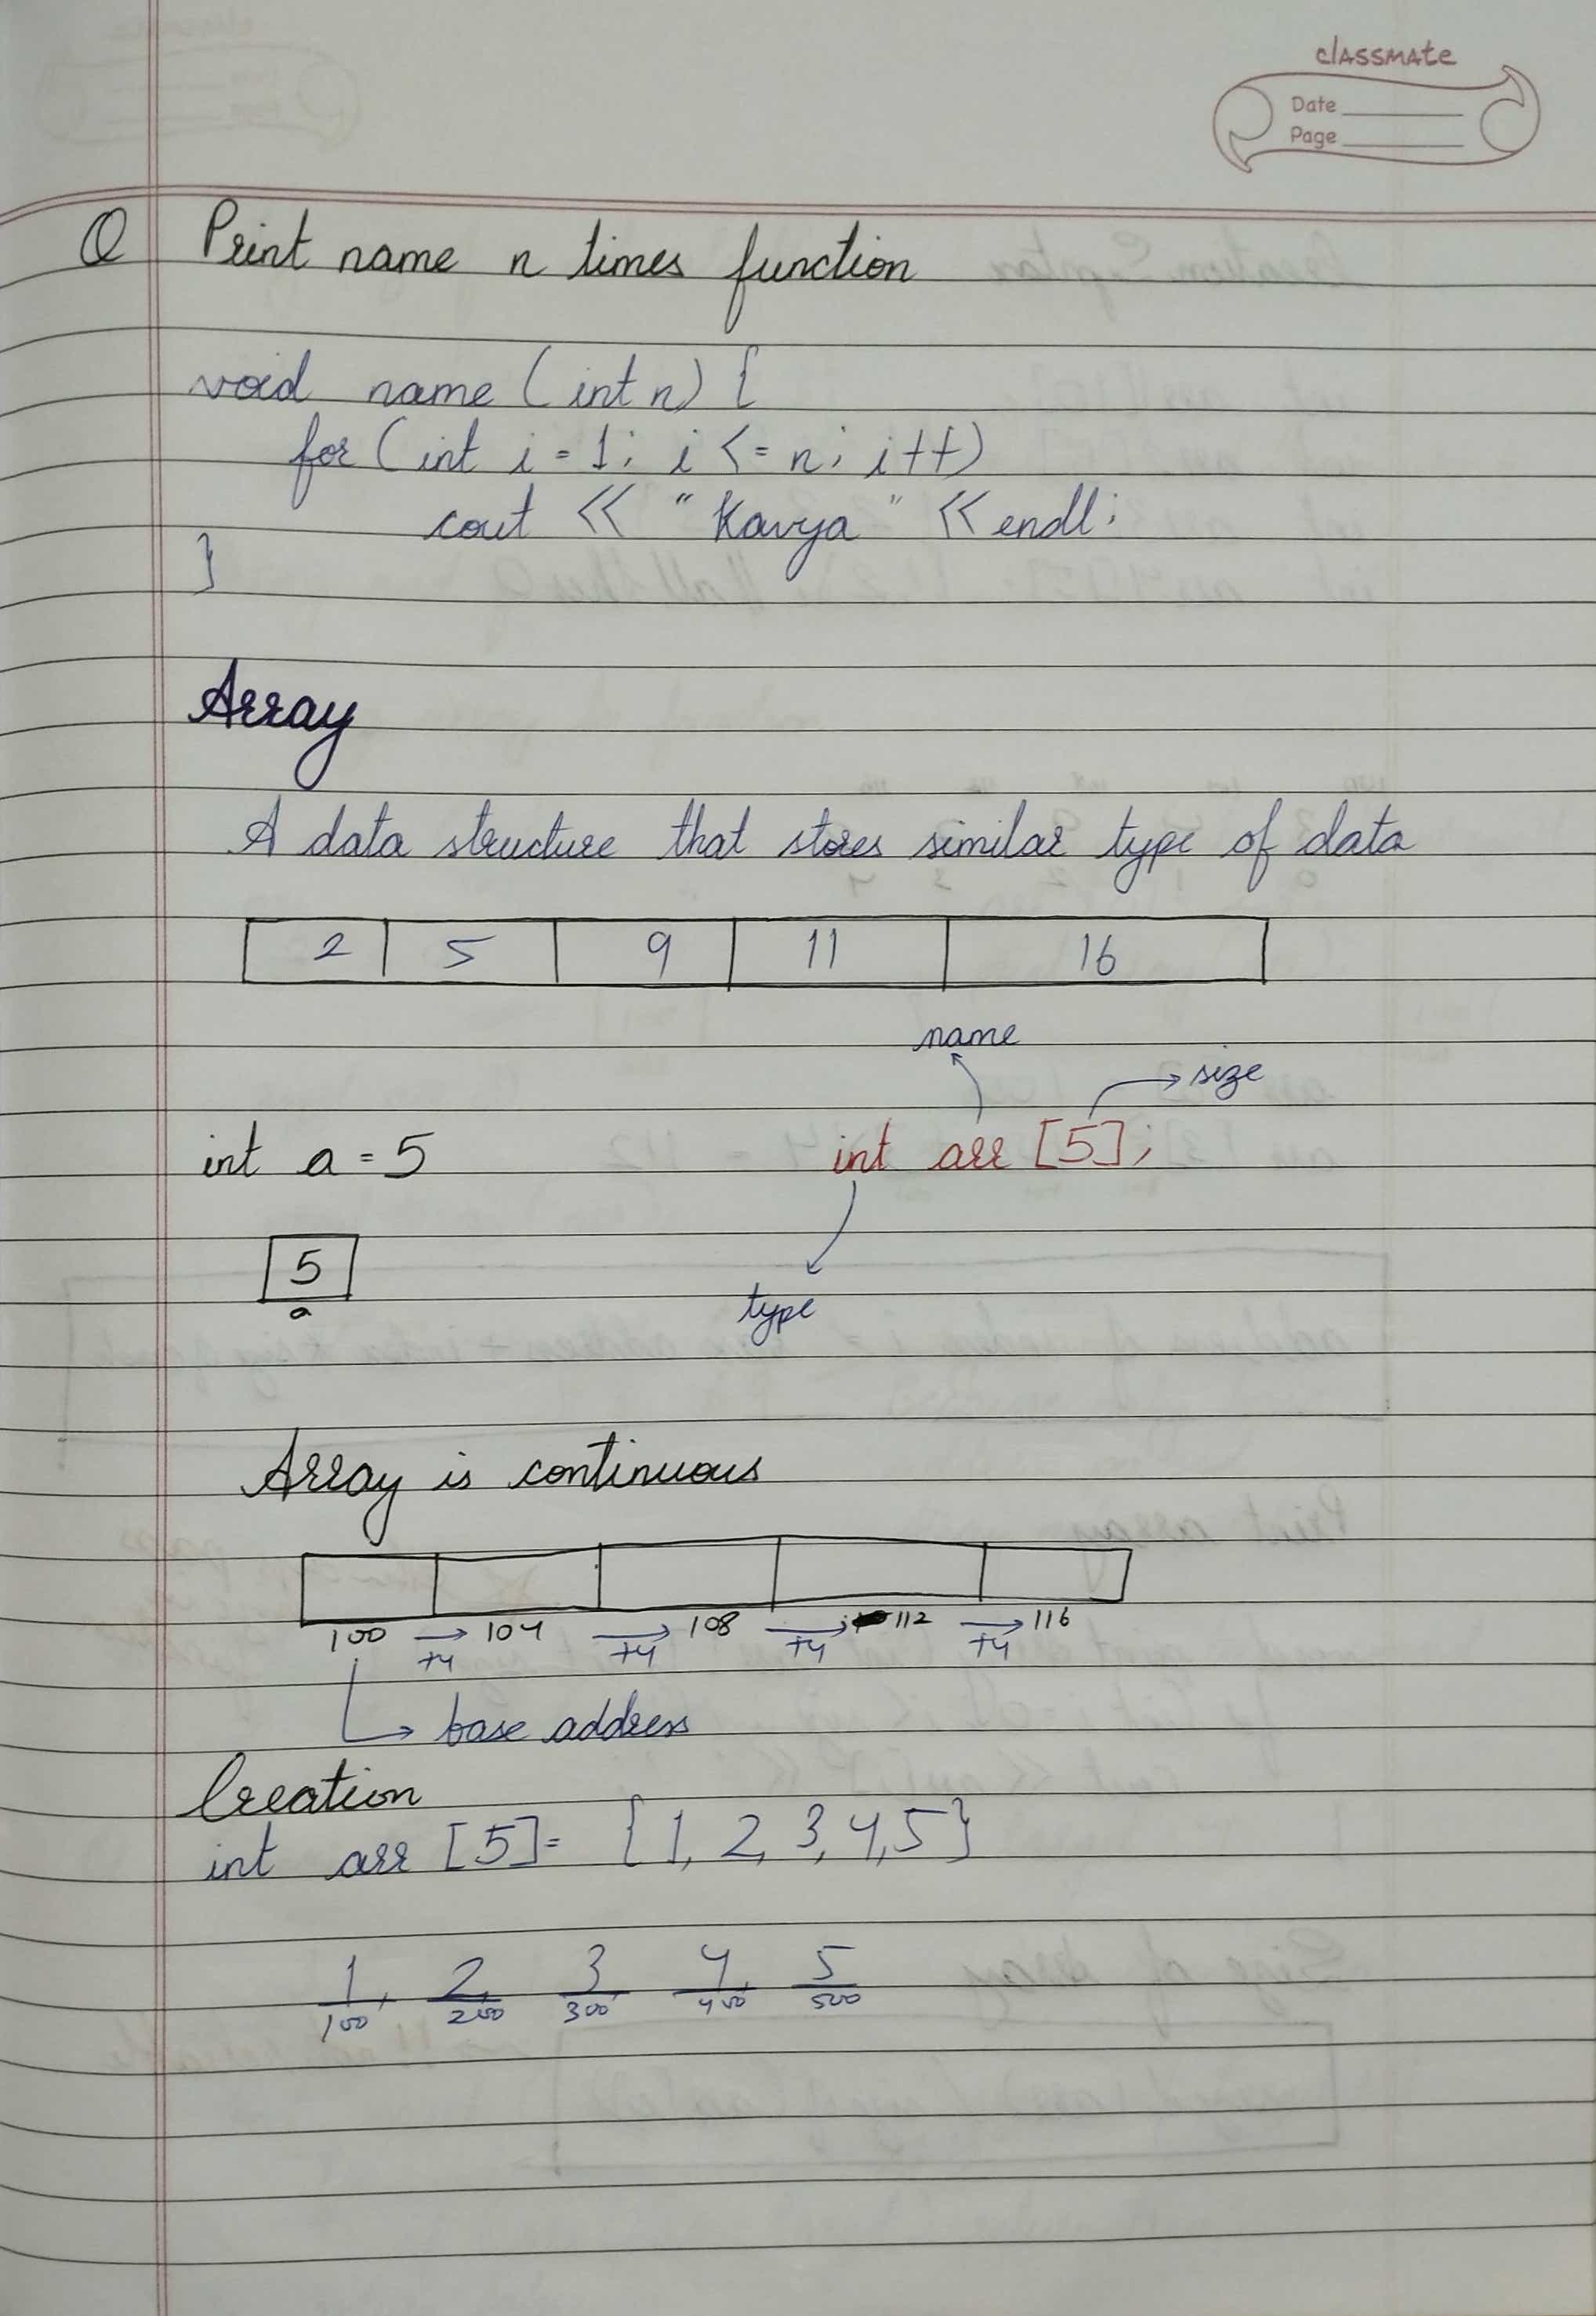 classmate
Date
Page
Q Print name n times function
void name (int n) {
for (int i = 1; i <= n; i++)
cout << "Kavya" << endl;
}
Array
A data structure that stores similar type of data
2 5 9 11 16
name
size
int a = 5 int arr [5];
5
a
type
Array is continuous
100 → 104 → 108 → 112 → 116
+4 +4 +4 +4
→ base address
Creation
int arr [5] = {1, 2, 3, 4, 5}
1, 2, 3, 4, 5
100 200 300 400 500